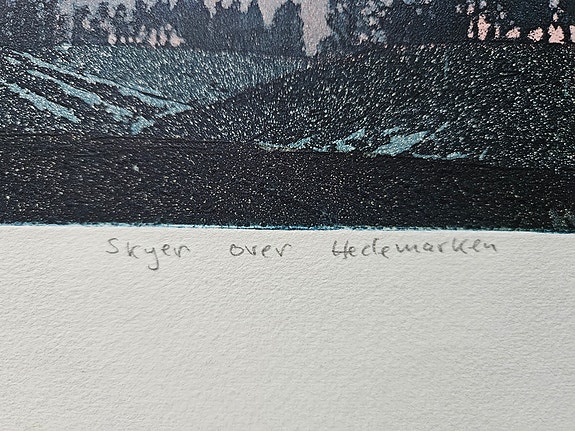 Skyer over Hedemarken